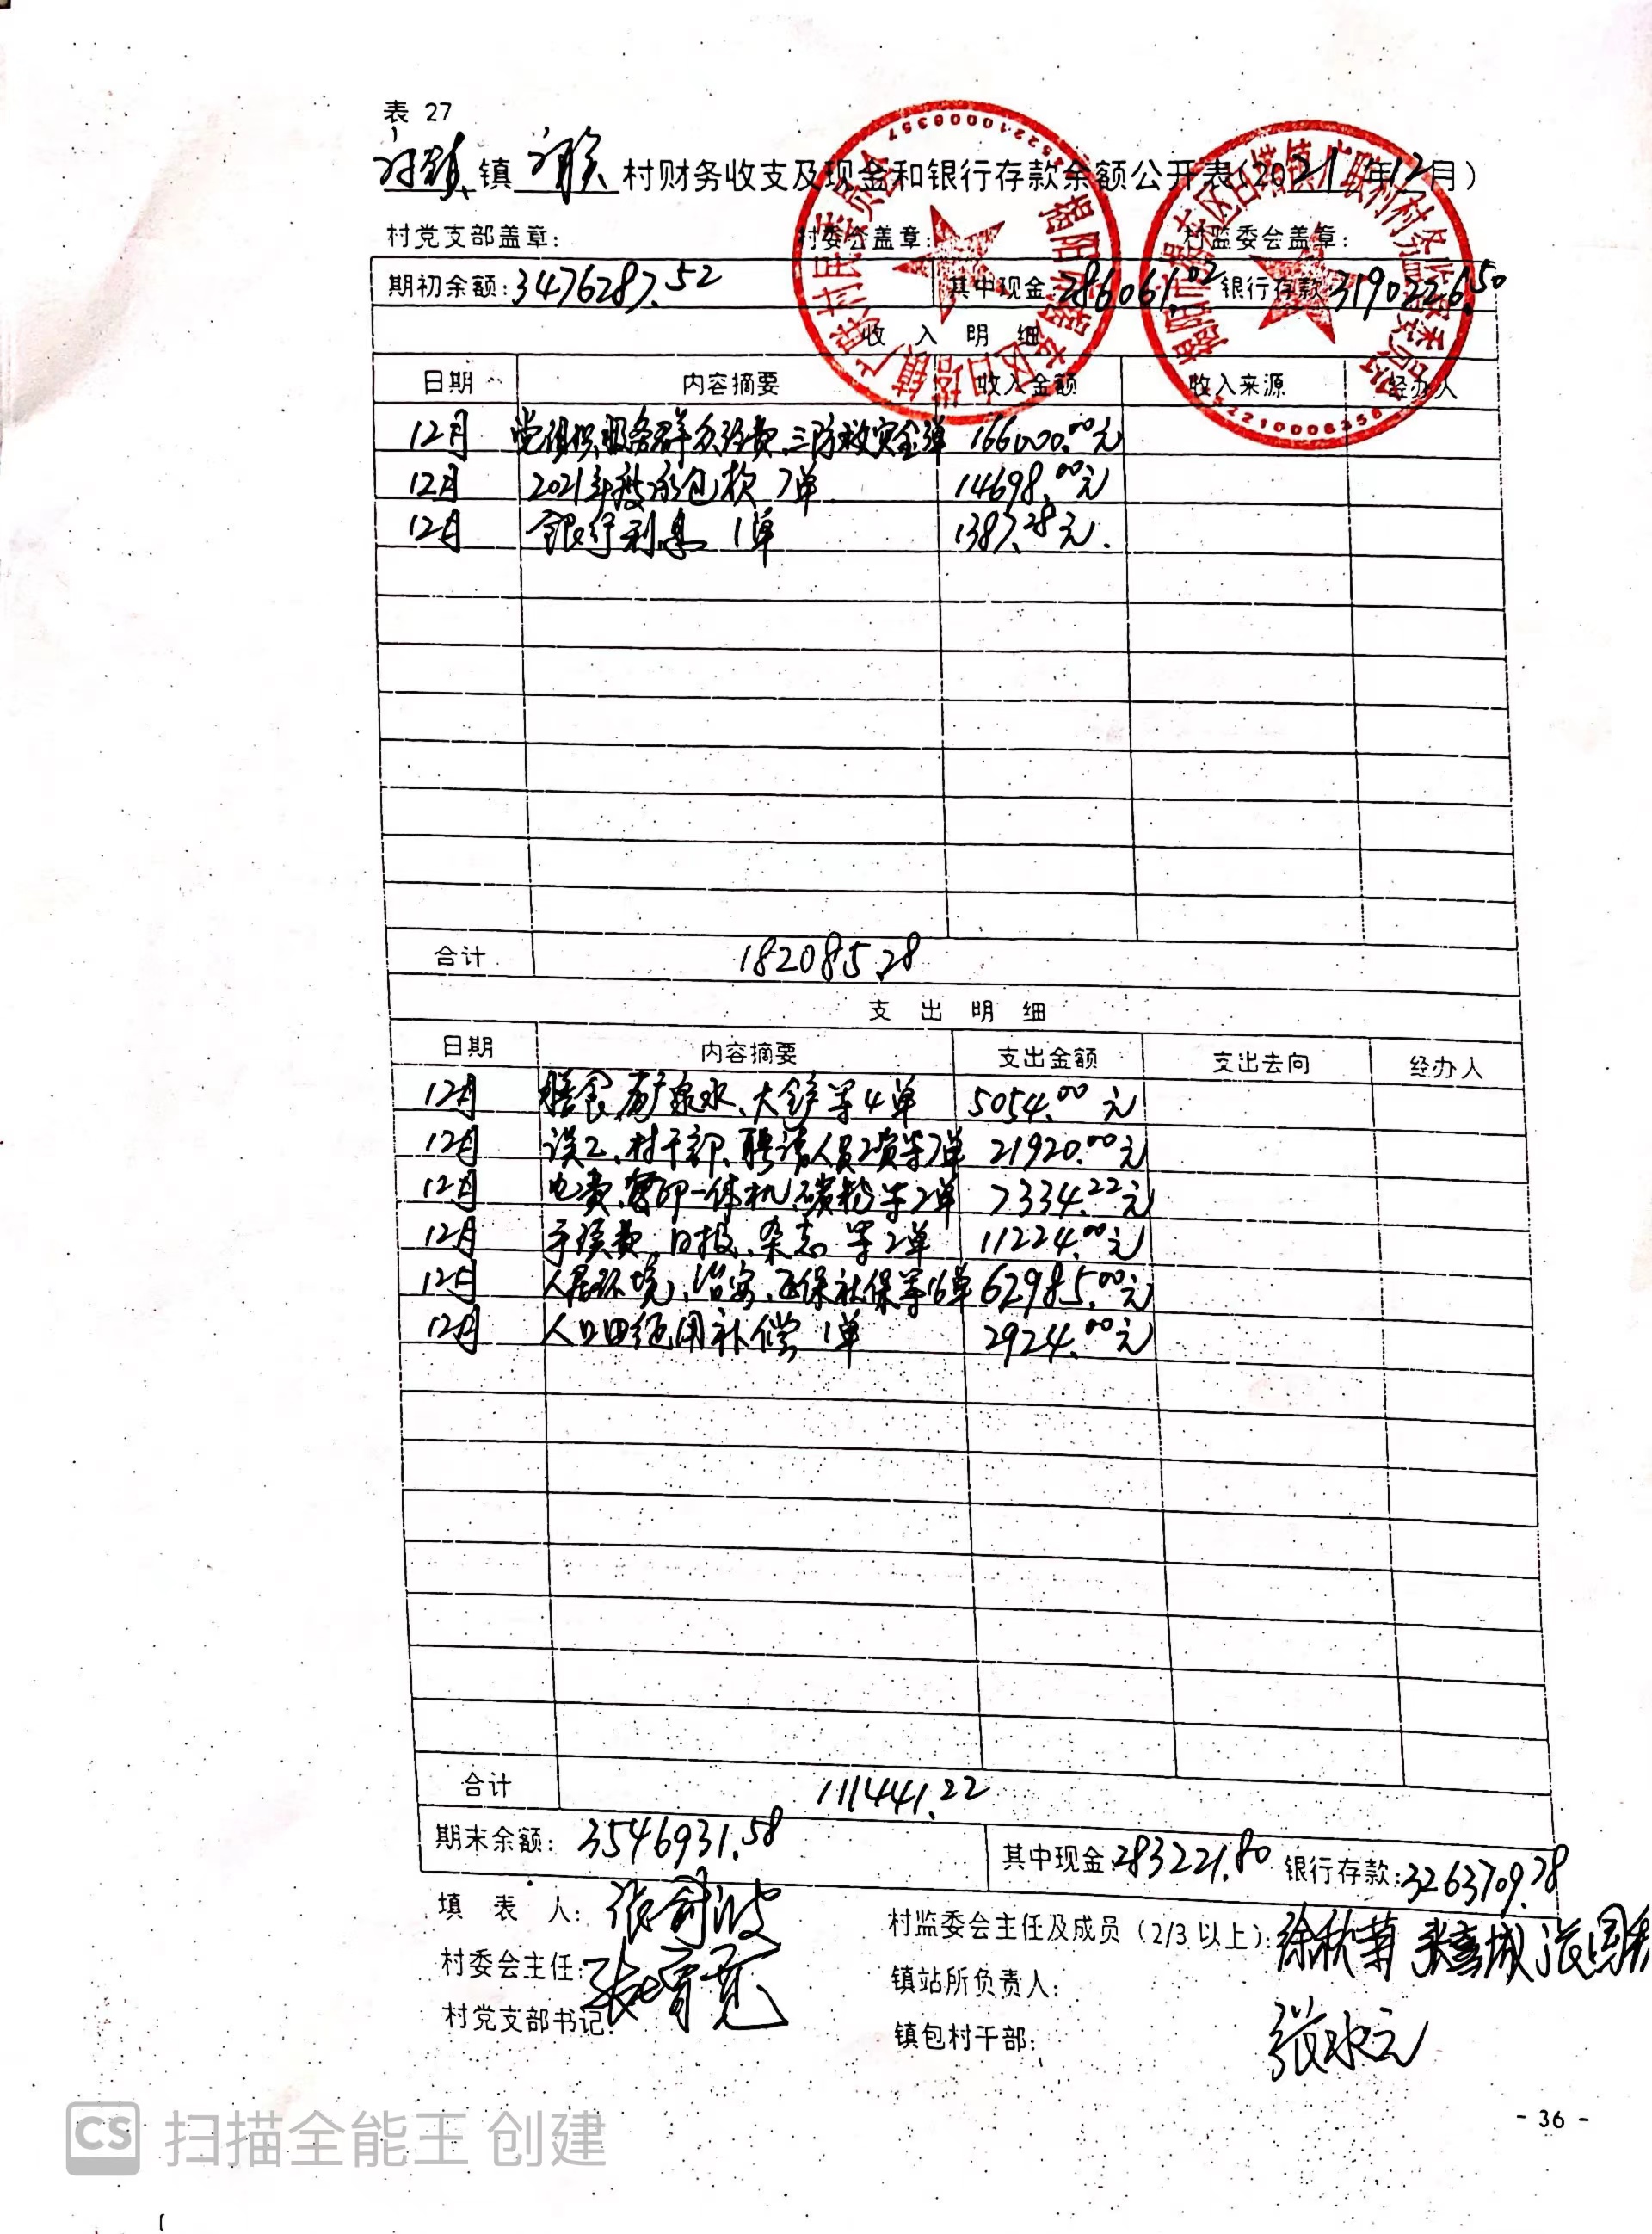 表 27
白塔镇 广联 村财务收支及现金和银行存款余额公开表(2021年12月)
村党支部盖章: 村委会盖章: 村监委会盖章:
期初余额:3476287.52 其中现金:286061.02 银行存款:3190226.50
收 入 明 细
日期 内容摘要 收入金额 收入来源 经办人
12月 党组织服务群众经费、三防救灾金 166000.00元
12月 2021年度承包款 7单 14698.00元
12月 银行利息 1单 1387.28元.
合计 182085.28
支 出 明 细
日期 内容摘要 支出金额 支出去向 经办人
12月 膳食、矿泉水、大铲等4单 5054.00元
12月 误工、村干部、聘请人员工资等7单 21920.00元
12月 电费、复印一体机、碳粉等2单 7334.22元
12月 手续费、日报、杂志 等2单 11224.00元
12月 人居环境、治安、医保社保等16单 62985.00元
12月 人口田征用补偿 1单 2924.00元
合计 111441.22
期末余额: 3546931.58 其中现金:283221.80 银行存款:3263709.78
填 表 人:
村监委会主任及成员(2/3以上): 徐秋菊
村委会主任:
镇站所负责人:
村党支部书记:
镇包村干部: 张水元
- 36 -
CS 扫描全能王 创建